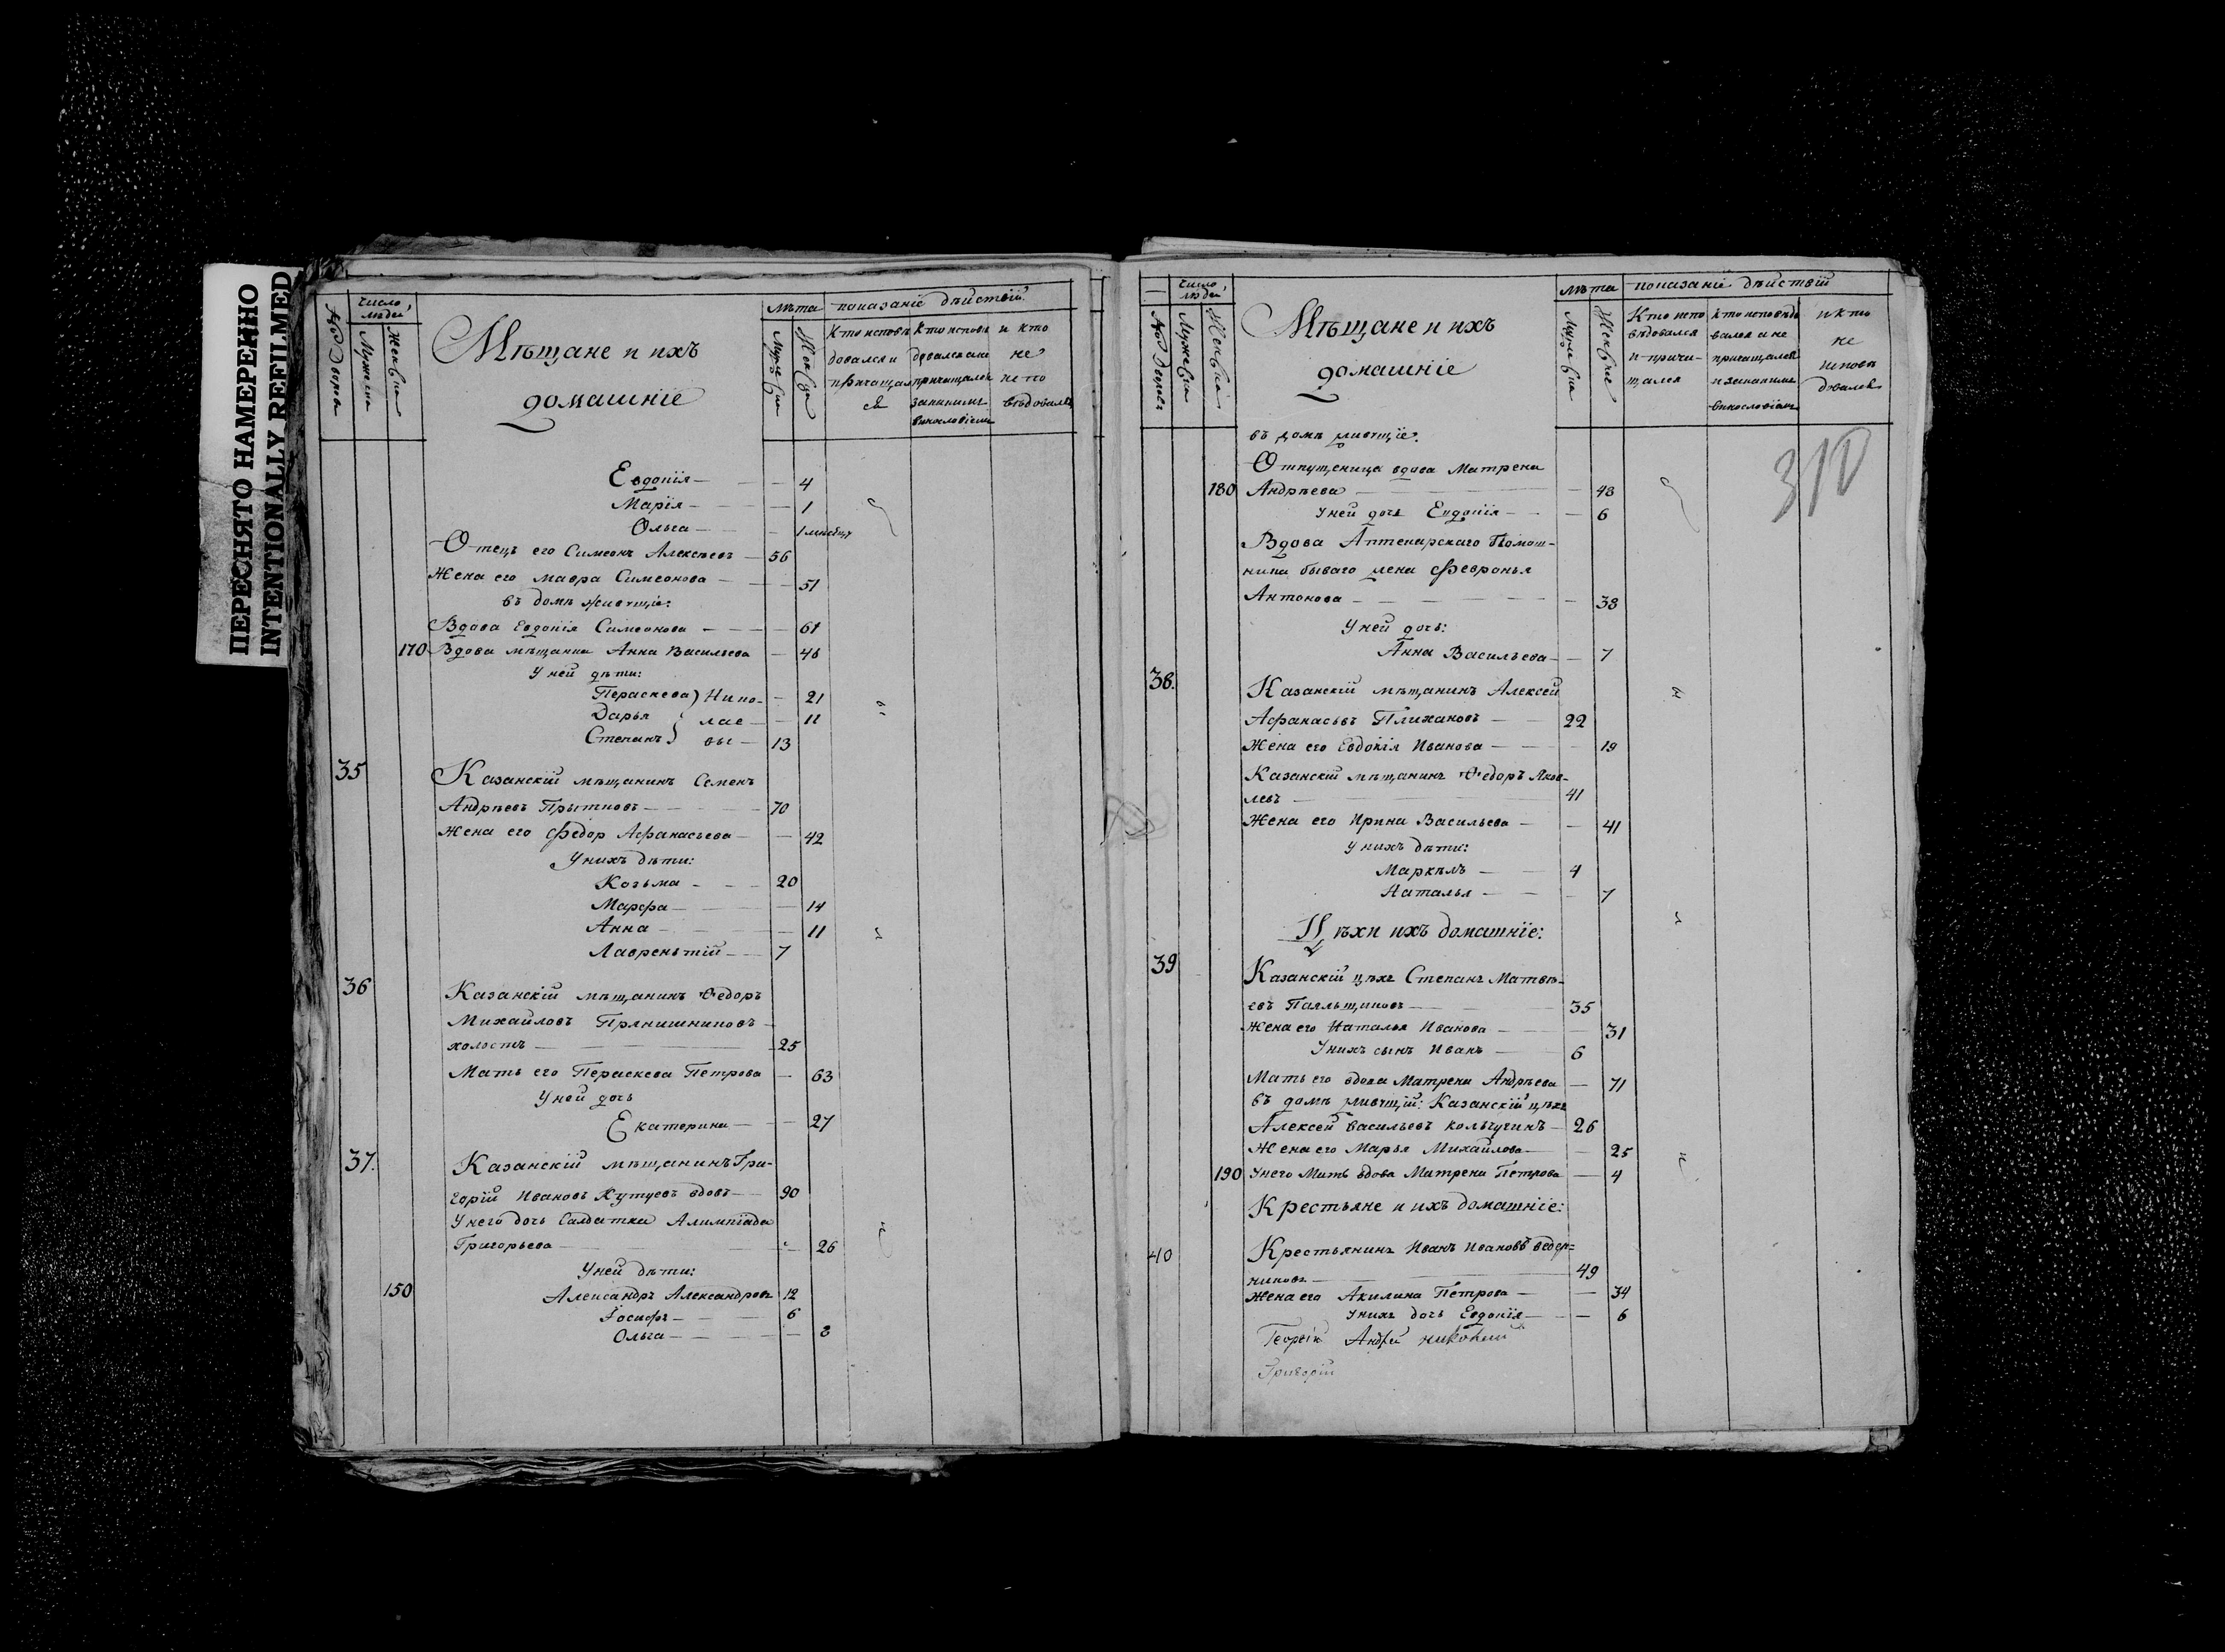 ПЕРЕСНЯТО НАМЕРЕННО
INTENTIONALLY REFILMED
число
людей
Мѣщане и ихъ
домашніе
лѣта
показаніе дѣйствій
Кто исповѣ
довался и
причащал
ся
Кто исповѣ
и кто
не
испо
вѣдовалъ
Евдокія — 4
Марія — 1
Ольга — 1 мѣсяцъ
Отецъ его Симеонъ Алексѣевъ — 56
Жена его Мавра Симеонова — 51
въ домѣ живущіе:
Вдова Евдокія Симеонова — 61
170 Вдова мѣщанка Анна Васильева — 46
У ней дѣти:
Пераскева) Нико- — 21
Дарья } лае — 11
Степанъ) вы — 13
35 Казанскій мѣщанинъ Семенъ
Андрѣевъ Прытковъ — 70
Жена его Федор Афанасьева — 42
У нихъ дѣти:
Козьма — 20
Марфа — 14
Анна — 11
Лаврентій — 7
36 Казанскій мѣщанинъ Ѳедоръ
Михайловъ Прянишниковъ
холостъ — 25
Мать его Пераскева Петрова — 63
У ней дочь
Екатерина — 27
37. Казанскій мѣщанинъ Гри-
горій Ивановъ Кутуевъ вдовъ — 90
У него дочь Салдатка Алимпіада
Григорьева — 26
У ней дѣти:
150 Александръ Александровъ 12
Іосифъ — 6
Ольга — 3
число
людей
Мѣщане и ихъ
домашніе
лѣта
показаніе дѣйствій
Кто испо
вѣдовался
и прича-
щался
кто исповѣдо
вался и не
причащался
и кто
не
исповѣ
довался
310
въ домѣ живущіе:
Отпущеница вдова Матрена
180 Андрѣева — 48
У ней дочь Евдокія — 6
Вдова Аптекарскаго Помош-
ника бываго жена Февронья
Антонова — 38
У ней дочь:
Анна Васильева — 7
38. Казанскій мѣщанинъ Алексей
Афанасьвъ Плихановъ — 22
Жена его Евдокія Иванова — 19
Казанскій мѣщанинъ Ѳедоръ Яков-
левъ — 41
Жена его Ирина Васильева — 41
У нихъ дѣти:
Маркелъ — 4
Наталья — 7
Цѣхи ихъ домашніе:
39 Казанскій цѣхъ Степанъ Матвѣ-
евъ Паяльщиковъ — 35
Жена его Наталья Иванова — 31
У нихъ сынъ Иванъ — 6
Мать его вдова Матрена Андрѣева — 71
Въ домѣ живущій: Казанскій цѣхъ
Алексей Васильевъ Кольчугинъ — 26
Жена его Марья Михайлова — 25
190 У него Мать вдова Матрена Петрова — 4
Крестьяне и ихъ домашніе:
40 Крестьянинъ Иванъ Ивановъ Ведер=
никовъ — 49
Жена его Акилина Петрова — 34
У нихъ дочь Евдокія — 6
Георгій Андрей Николай
Григорій